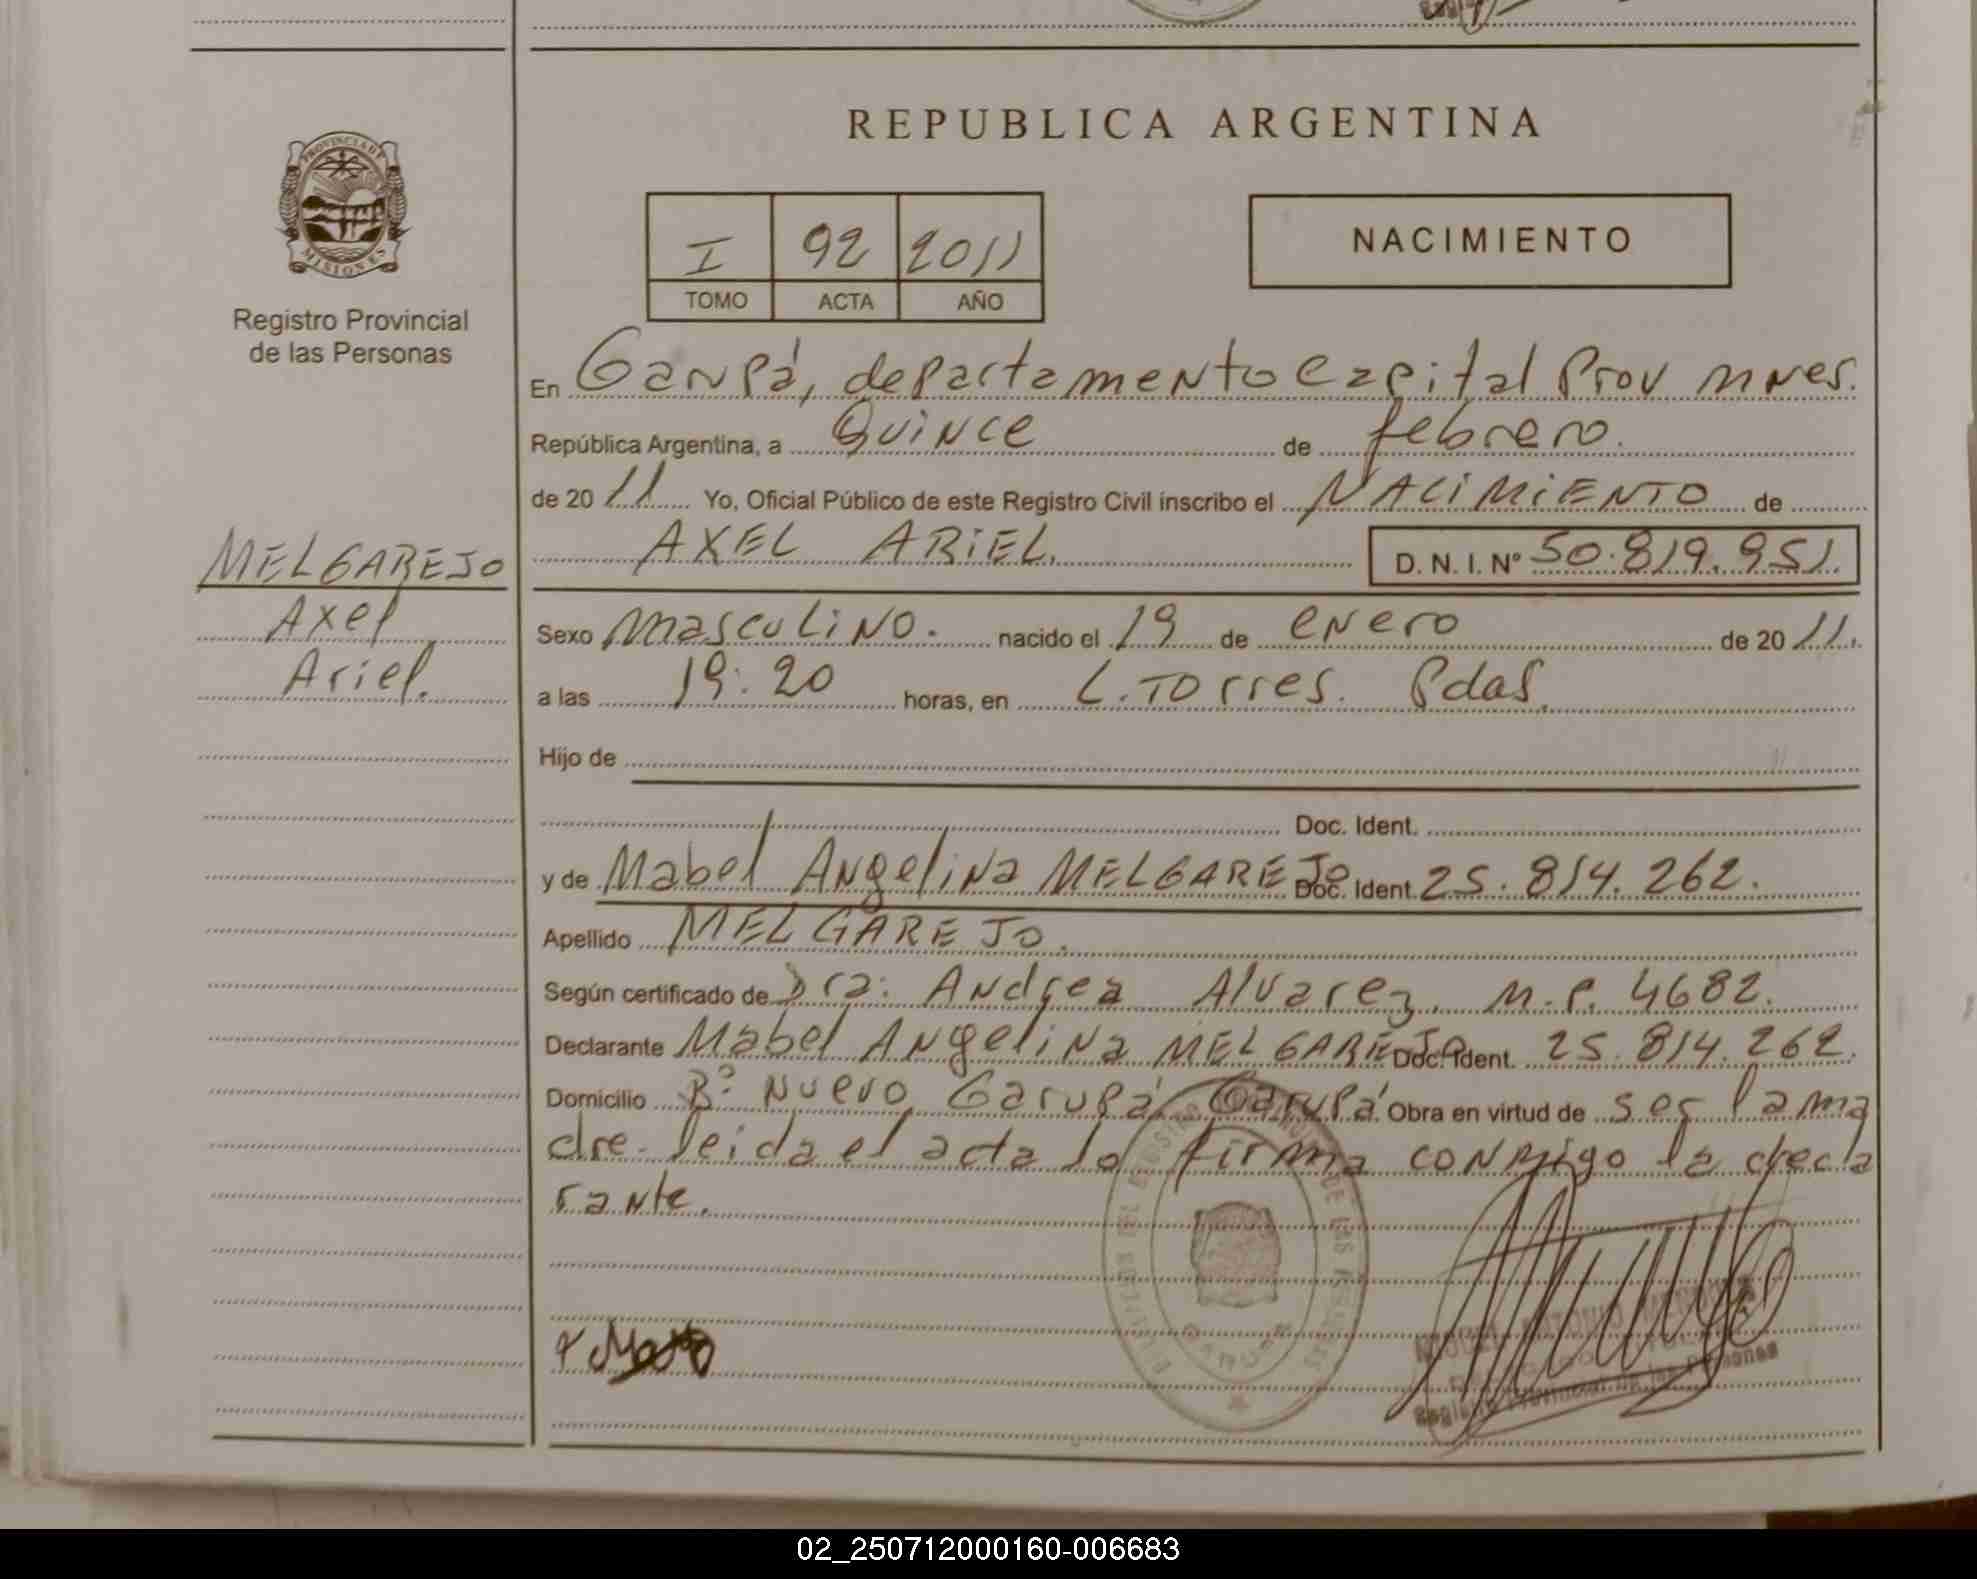 REPUBLICA ARGENTINA
PROVINCIA DE
MISIONES
Registro Provincial
de las Personas
I 92 2011
TOMO ACTA AÑO
NACIMIENTO
En Garupá, departamento Capital Prov Mnes.
República Argentina, a Quince de febrero.
de 2011 Yo, Oficial Público de este Registro Civil inscribo el NACIMIENTO de
AXEL ARIEL. D. N. I. Nº 50.819.951.
MELGAREJO
Axel
Ariel.
Sexo masculino. nacido el 19 de enero de 2011.
a las 19:20 horas, en L. Torres. Pdas.
Hijo de
Doc. Ident.
y de Mabel Angelina MELGAREJO Doc. Ident. 25.814.262.
Apellido MELGAREJO.
Según certificado de Dra: Andrea Alvarez. M.P. 4682.
Declarante Mabel Angelina MELGAREJO Doc. Ident. 25.814.262.
Domicilio Bº Nuevo Garupá, Garupá. Obra en virtud de ser la ma
dre. leida el acta la firma conmigo la decla
rante.
GARUPA
Registro Provincial de las Personas
02_250712000160-006683